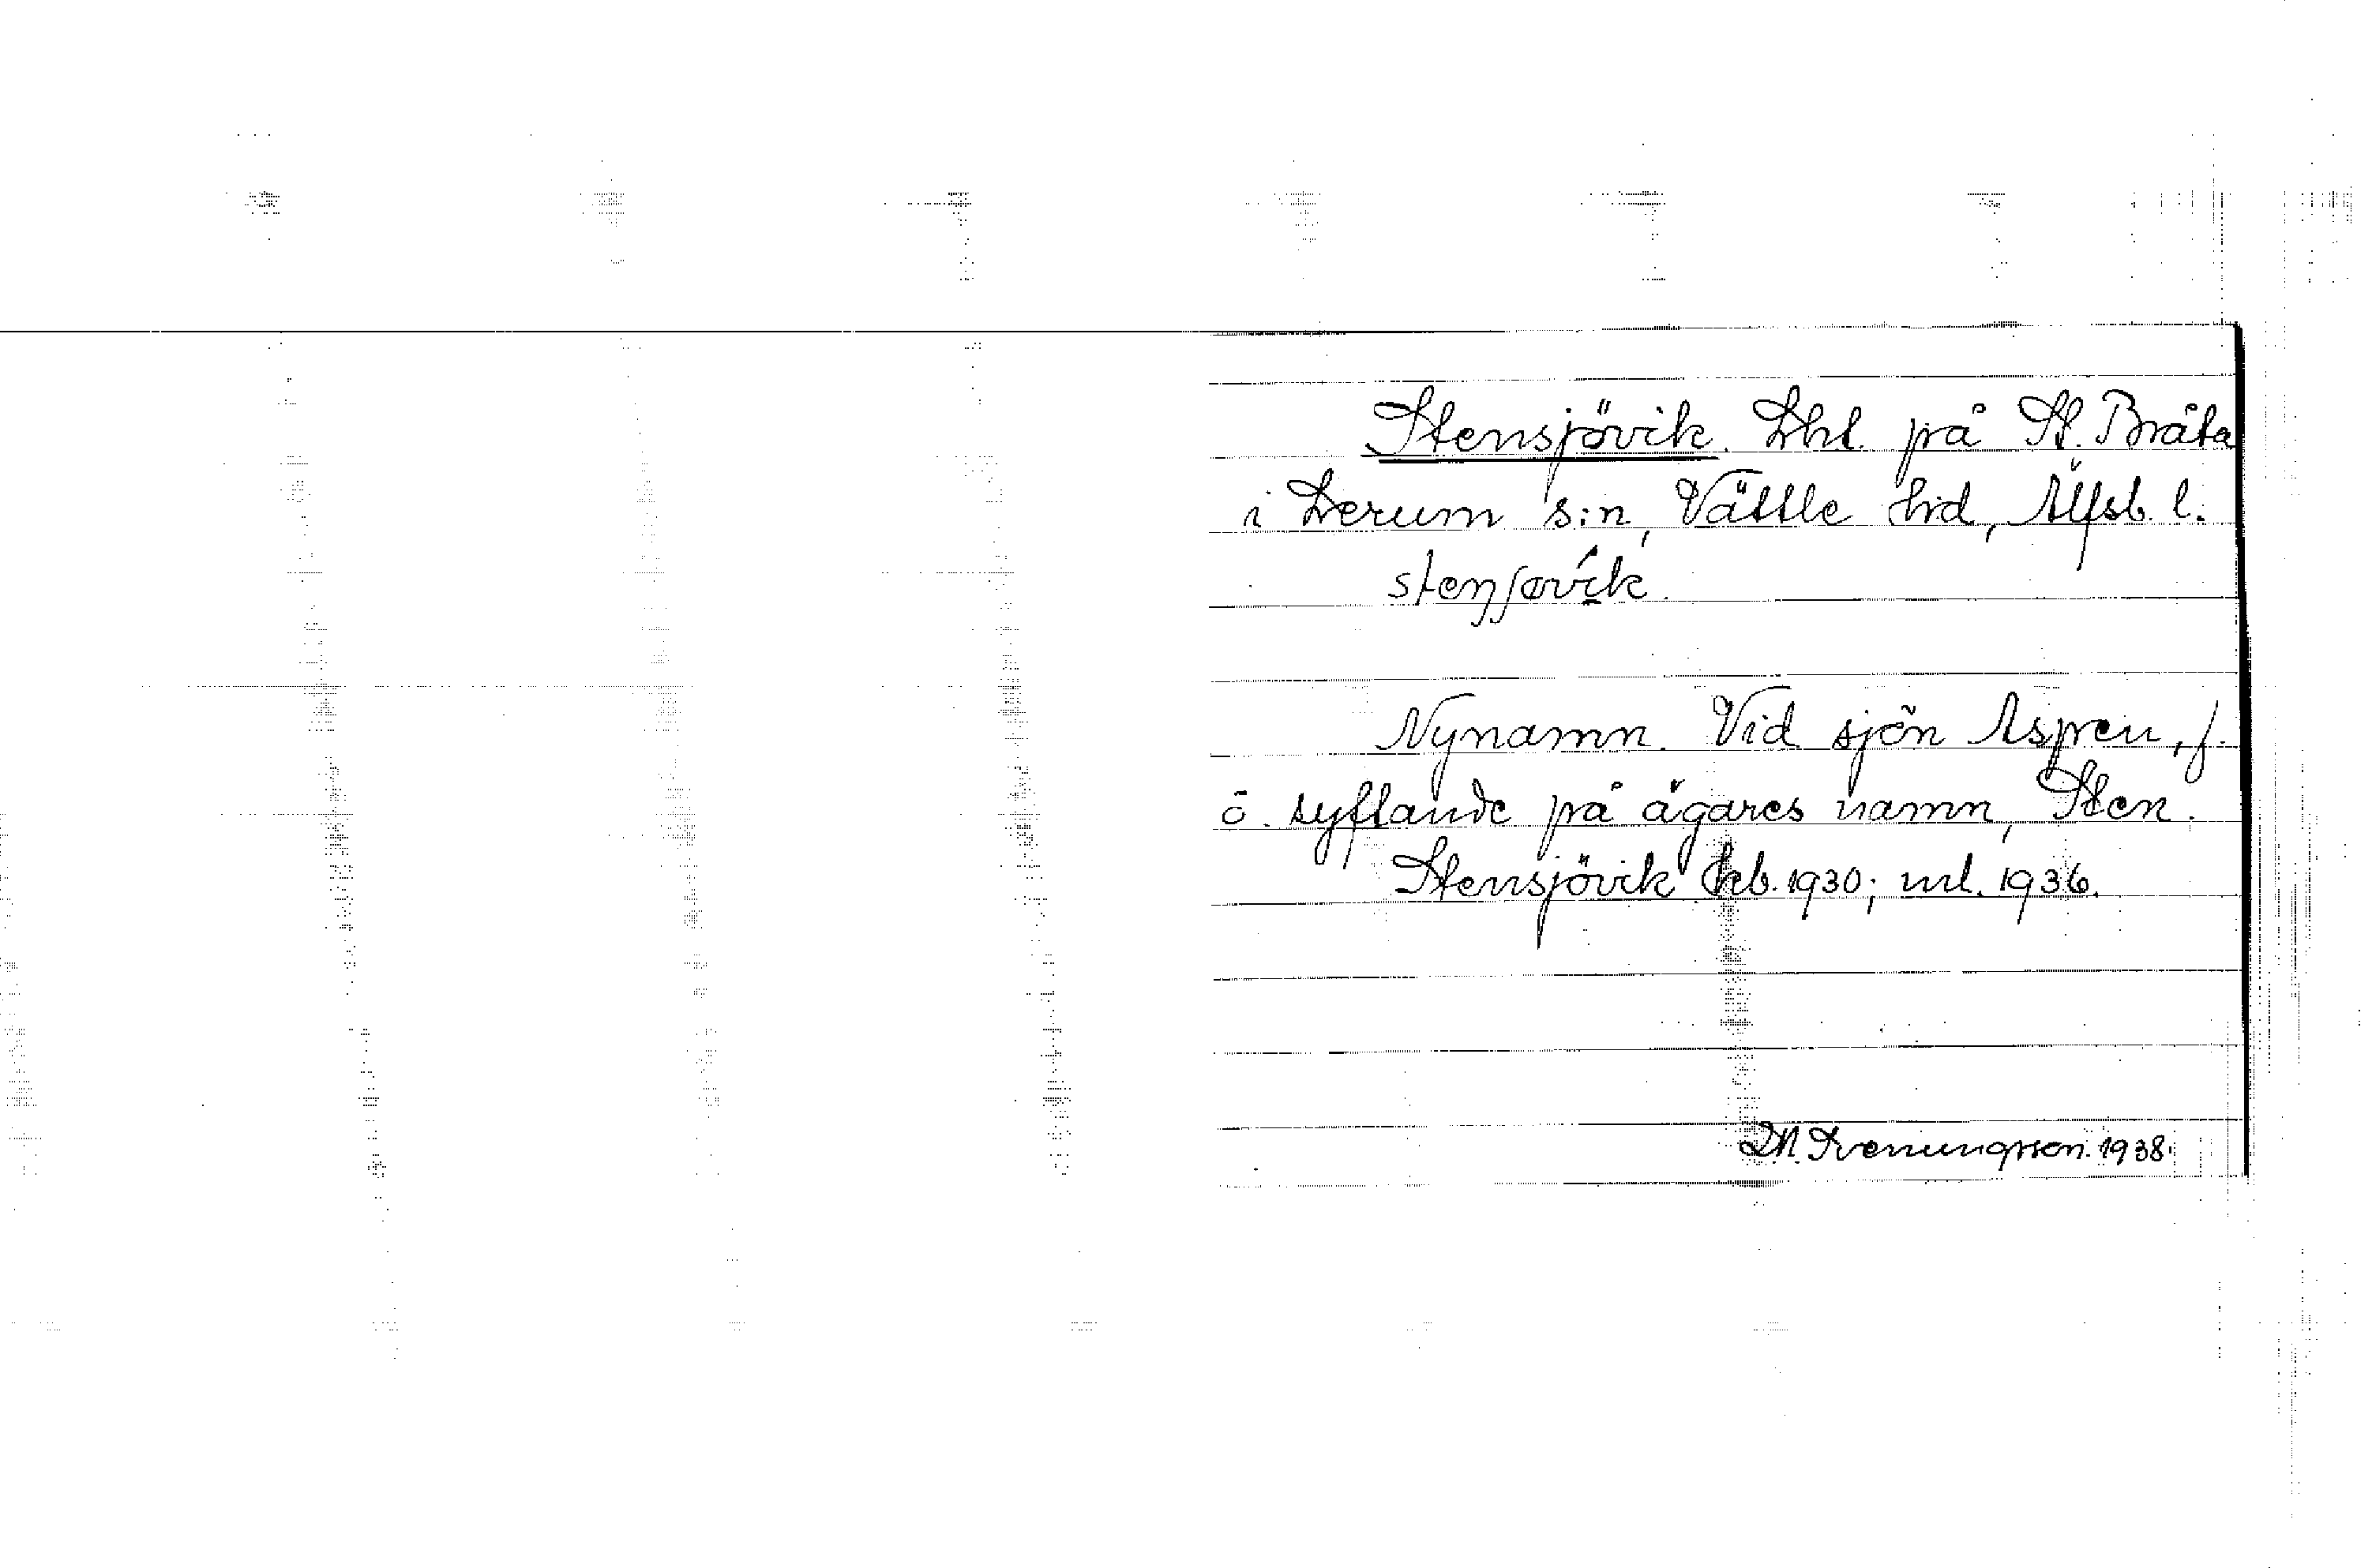 Stensjövik. Lht. på St. Bråta
i Lerum s:n, Vättle hd, Älfsb. l.
stenʃøvik.
Nynamn. Vid sjön Aspen, f.
ö. syftande på ägares namn, Sten.
Stensjövik kb. 1930; ml. 1936.
1938.